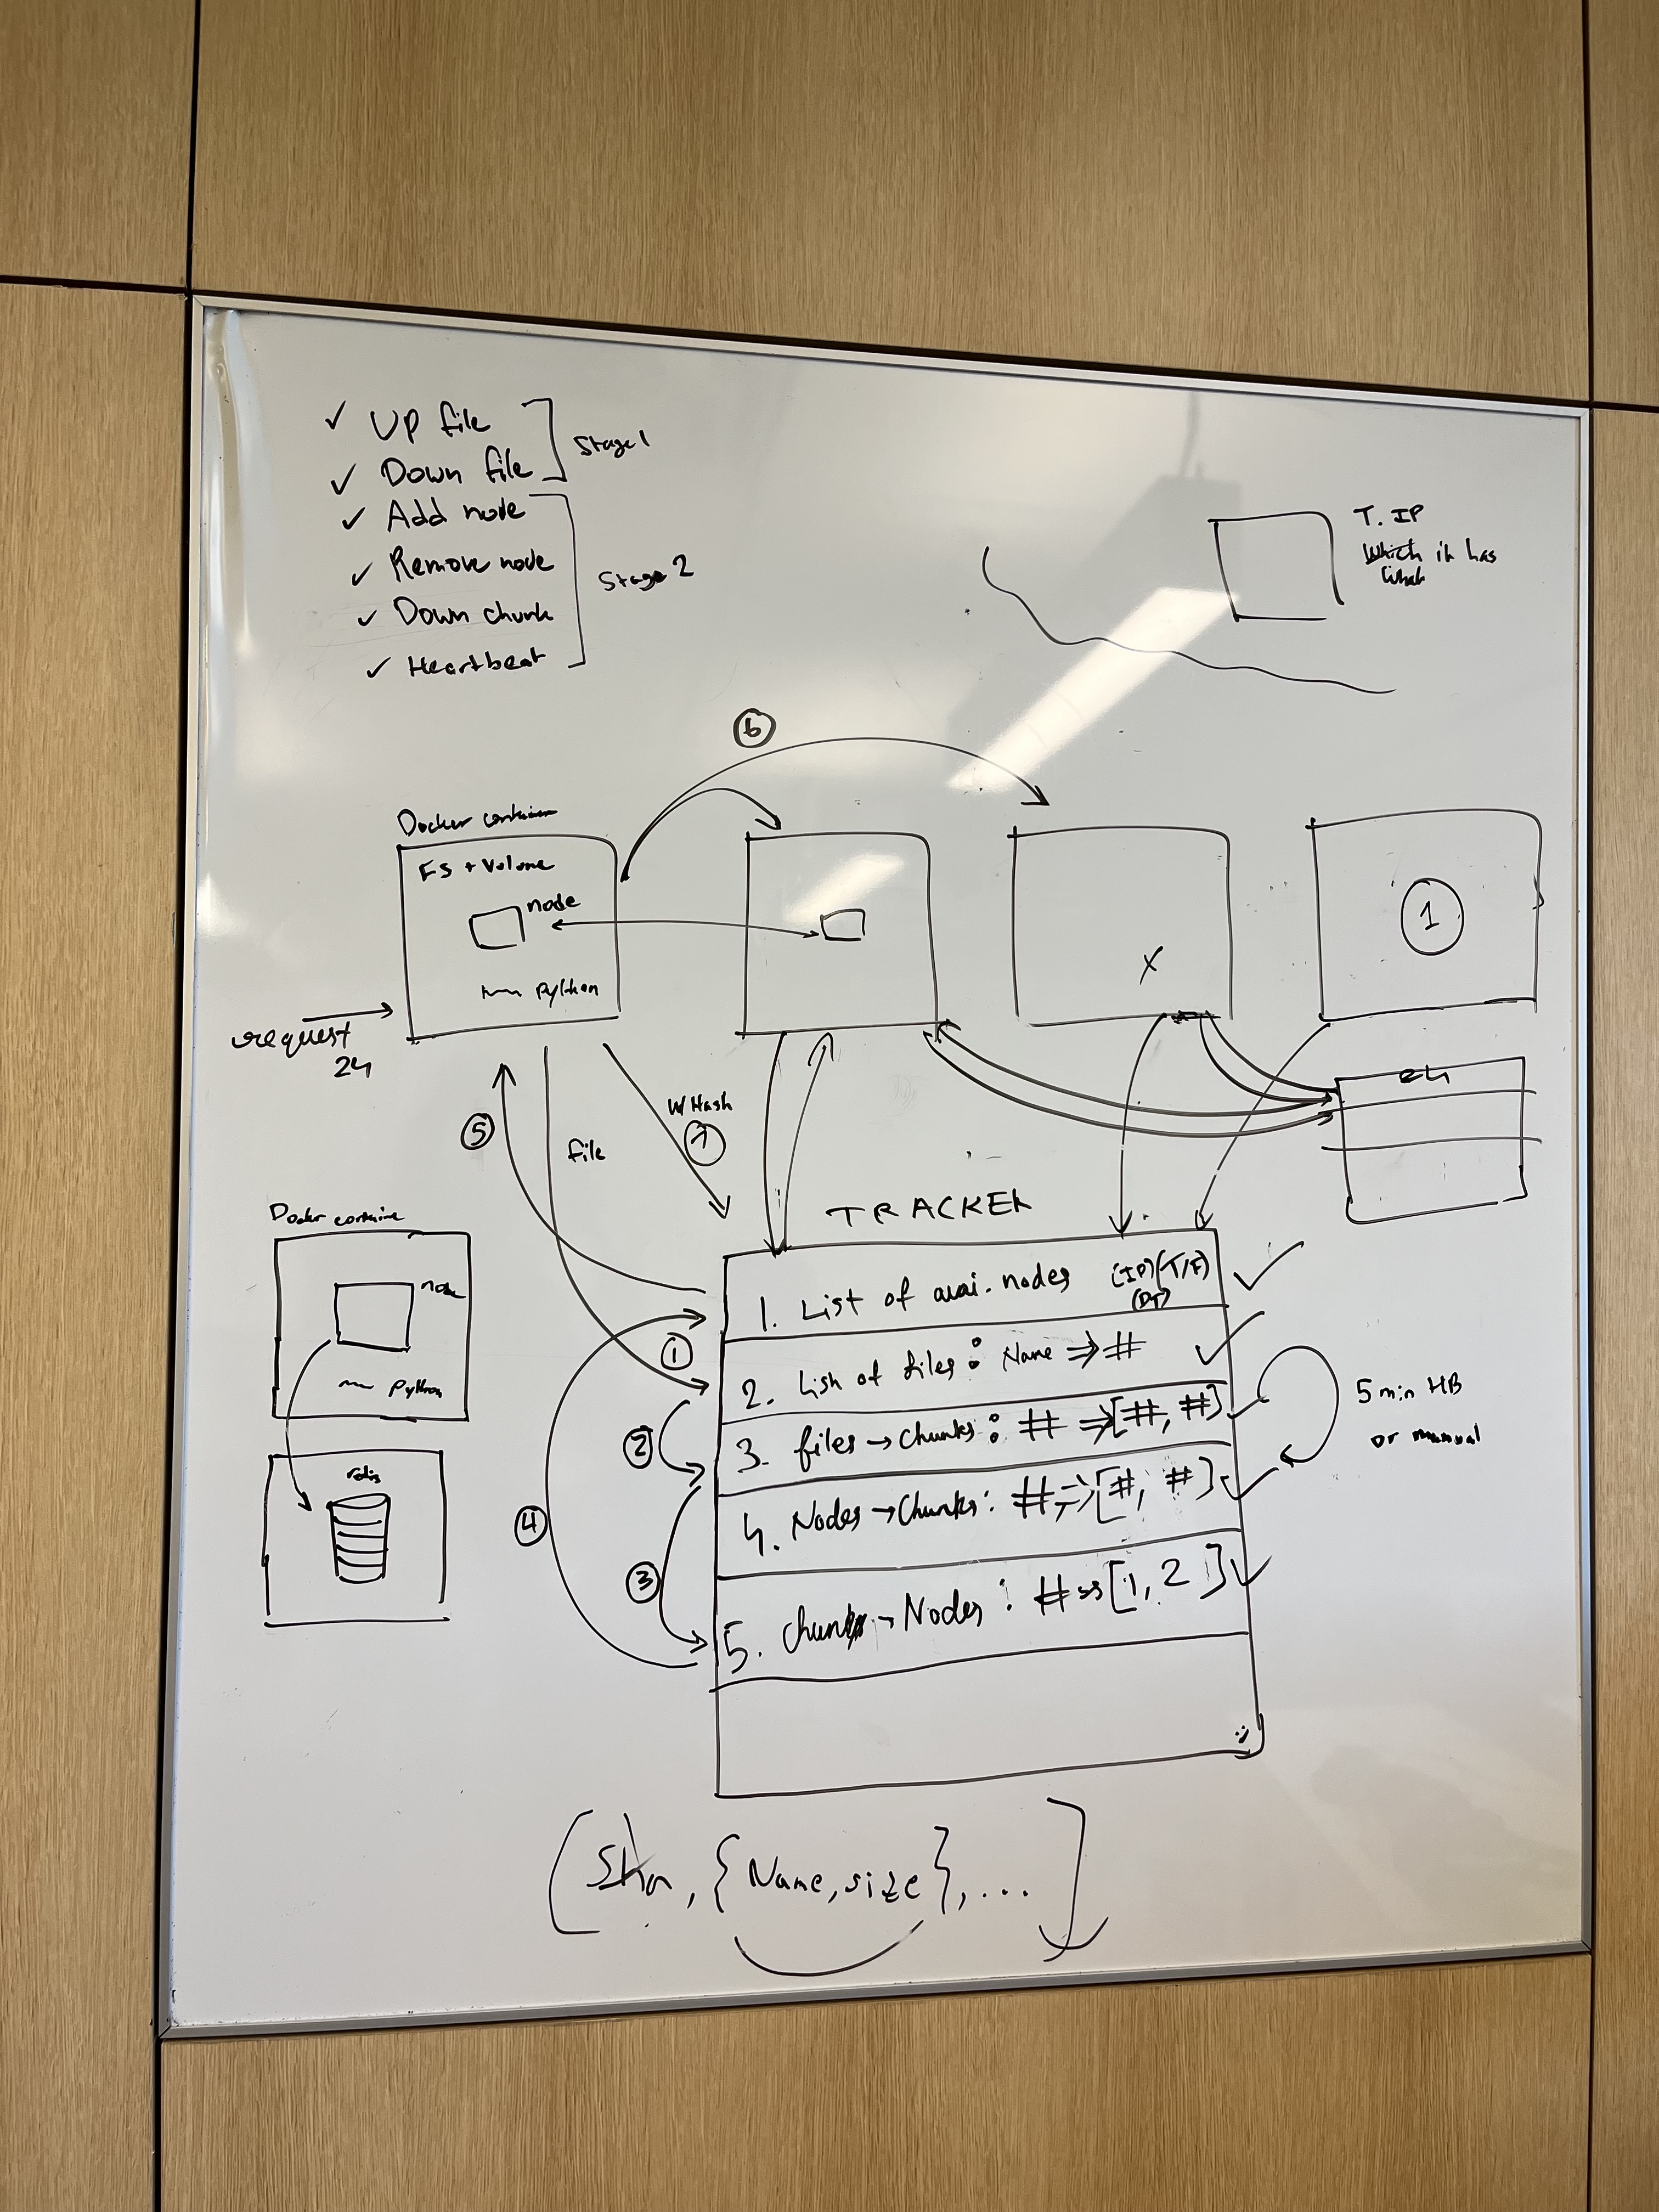 ✓ Up file
✓ Down file
Stage 1
✓ Add node
✓ Remove node
✓ Down chunk
✓ Heartbeat
Stage 2
T. IP
Which it has
what
6
Docker container
FS + Volume
node
Python
request
24
X
1
5
file
W/ Hash
7
TRACKER
1. List of avai. nodes (IP)(T/F)
(DT)
2. List of files : Name ⇒ #
3. files → Chunks : # ⇒ [#, #]
4. Nodes → Chunks : # ⇒ [#, #]
5. Chunks → Nodes : # ⇒ [1, 2]
1
2
3
4
5 min HB
or manual
Docker container
node
Python
redis
[Sha, {Name, size}, ...]